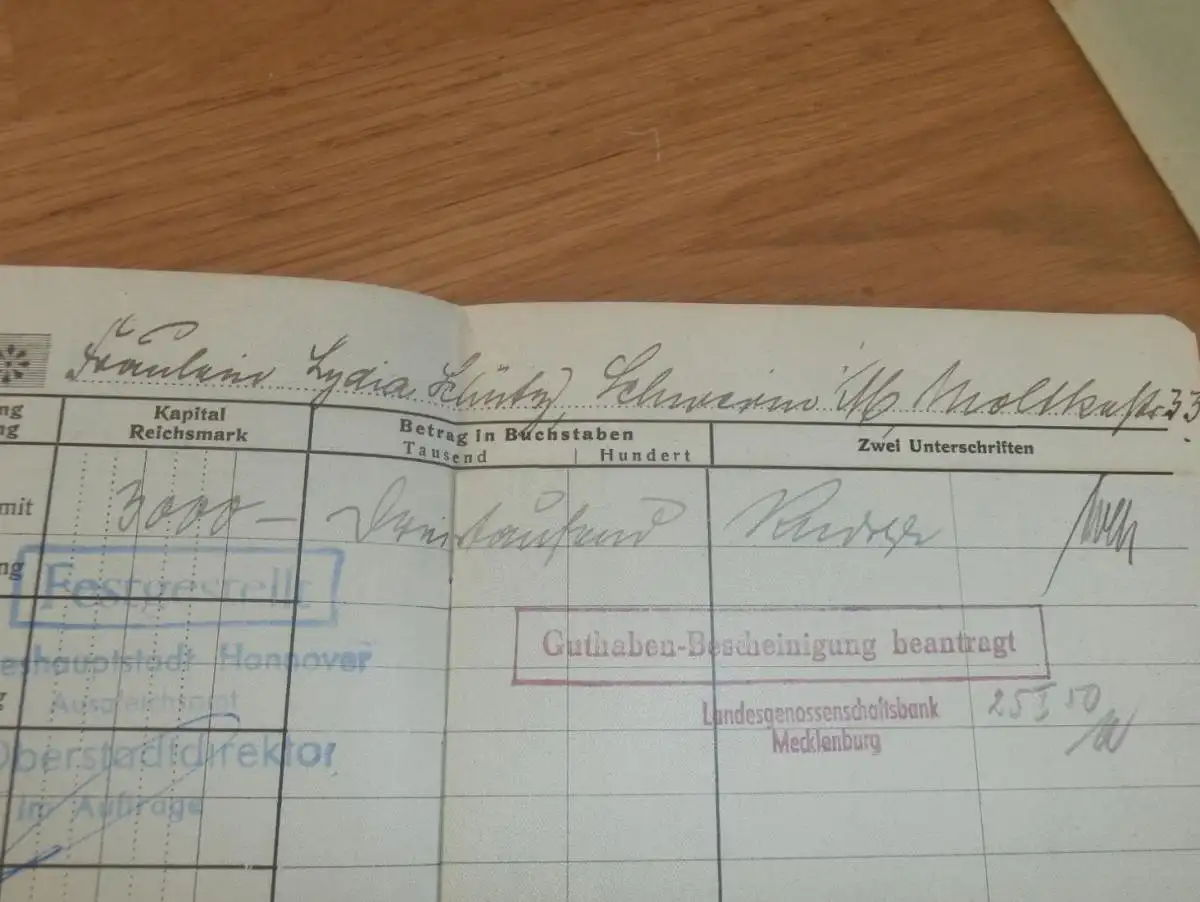 Fräulein Lydia Schütz, Schwerin i/M Moltkestr. 33.
ng
ng
Kapital
Reichsmark
Betrag in Buchstaben
Tausend | Hundert
Zwei Unterschriften
mit
3000 — Dreitausend
ng
Festgestellt
eshauptstadt Hannover
Ausgleichsamt
g
Oberstadtdirektor
Im Auftrage
Guthaben-Bescheinigung beantragt
Landesgenossenschaftsbank
Mecklenburg
25 I 50